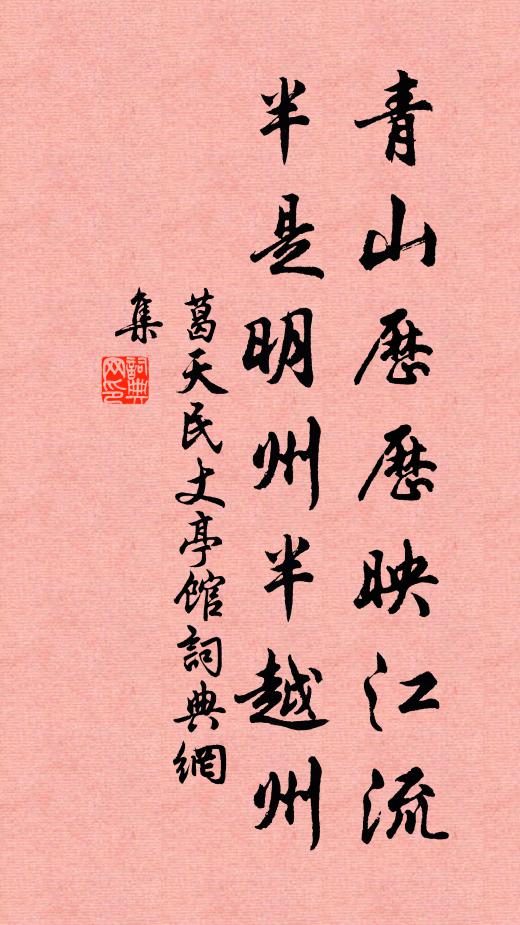 青山歷歷映江流
半是明州半越州
葛天民丈亭館詞典網
集
詞典網印